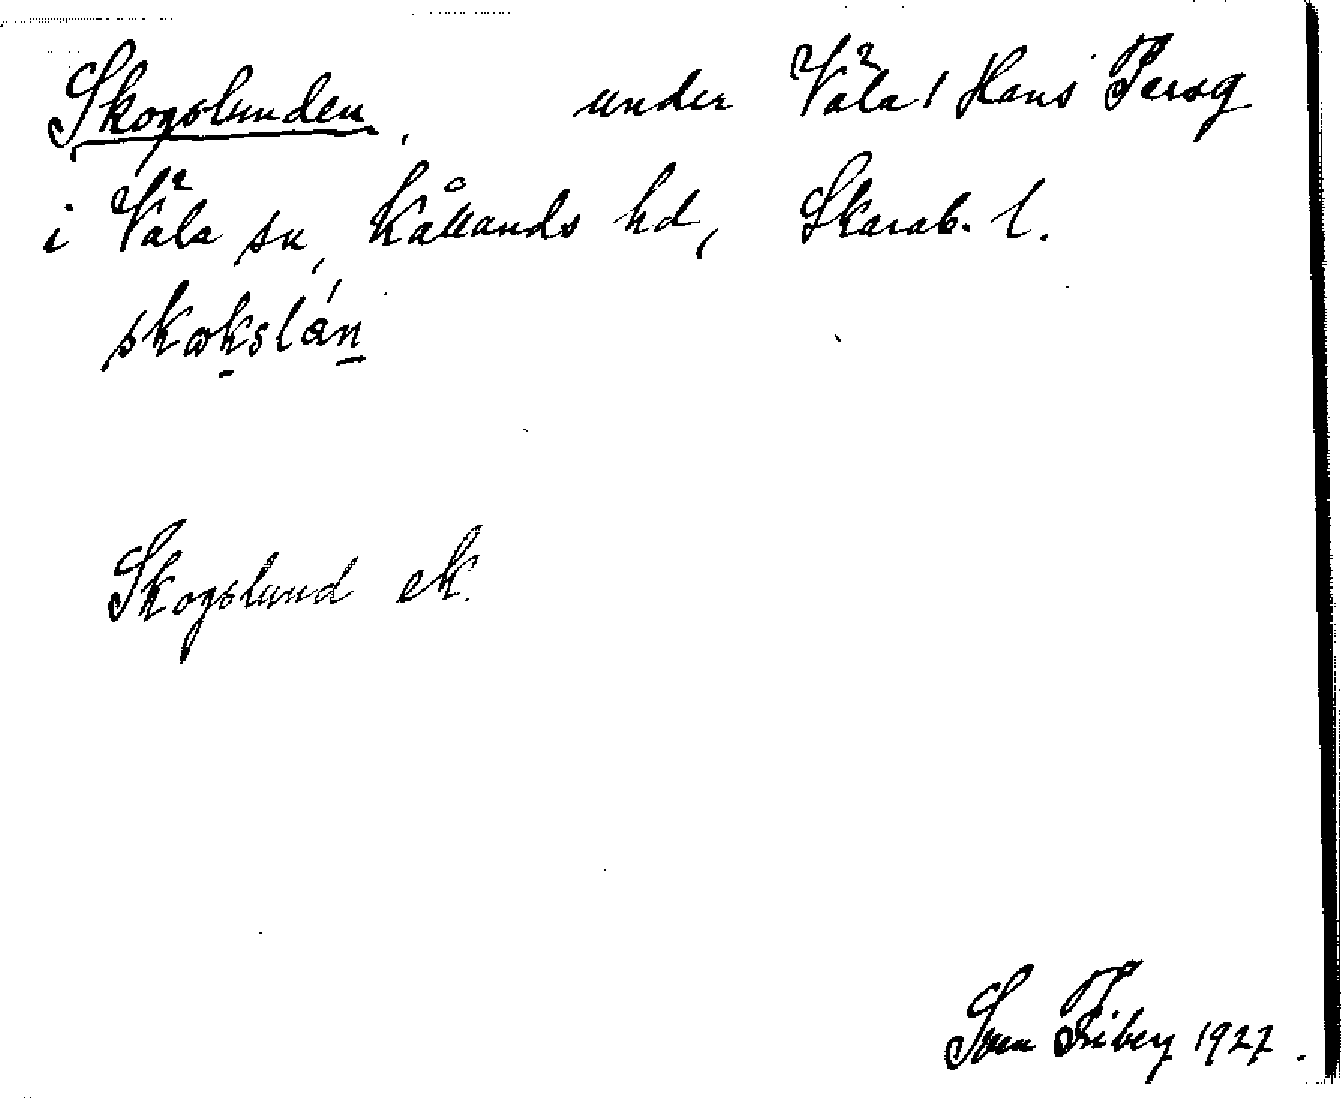 Skogslunden, under Väla / Hans Persg
i Väla sn, Kållands hd, Skarab. l.
skok̠slán̠
Skogslund ek.
Sven Friberg 1927.